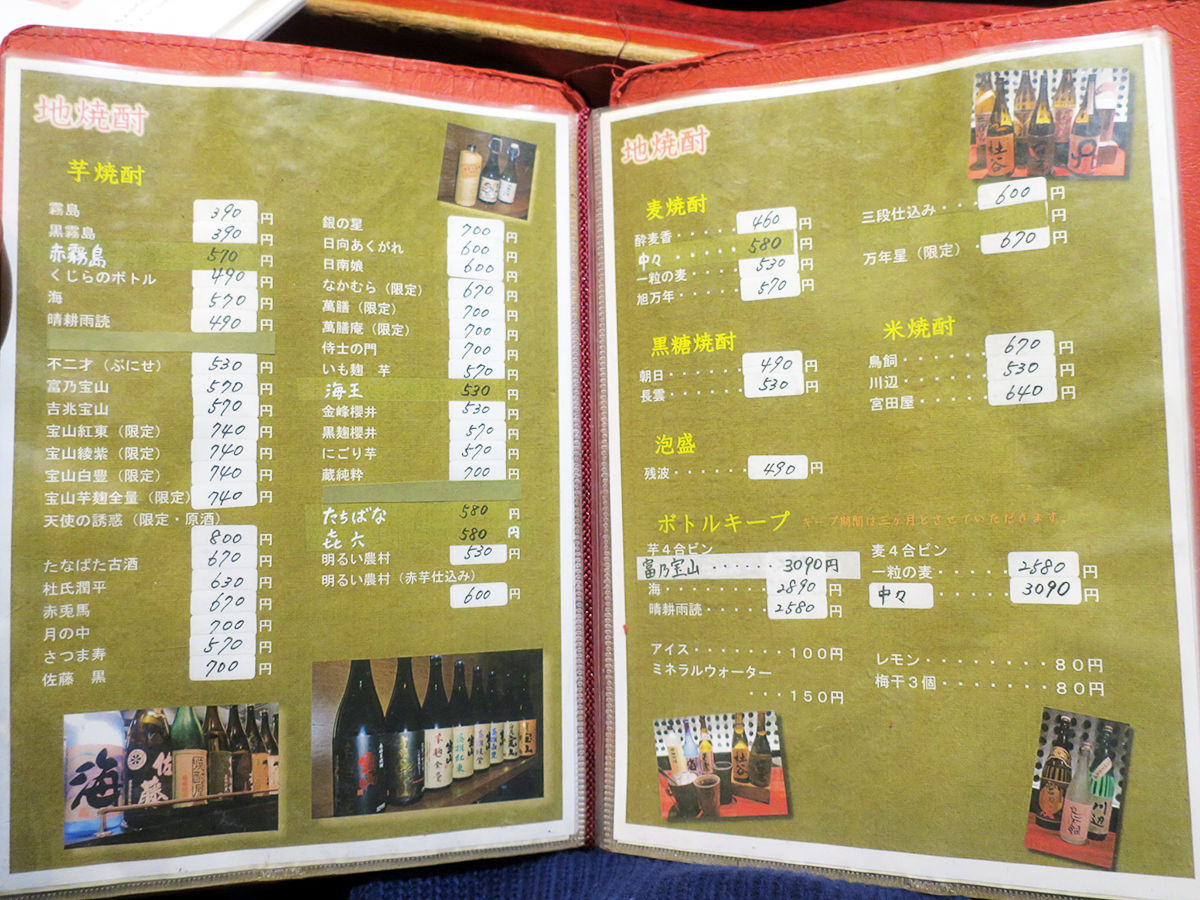 地焼酎
芋焼酎
霧島 390円
黒霧島 390円
赤霧島 570
くじらのボトル 490円
海 570円
晴耕雨読 490円
不二才（ぶにせ） 530円
富乃宝山 570円
吉兆宝山 570円
宝山紅東（限定） 740円
宝山綾紫（限定） 740円
宝山白豊（限定） 740円
宝山芋麹全量（限定） 740円
天使の誘惑（限定・原酒）
800円
たなばた古酒 670円
杜氏潤平 630円
赤兎馬 670円
月の中 700円
さつま寿 570円
佐藤 黒 700円
銀の星 700円
日向あくがれ 600円
日南娘 600円
なかむら（限定） 670円
萬膳（限定） 700円
萬膳庵（限定） 700円
侍士の門 700円
いも麹 芋 570円
海王 530円
金峰櫻井 530円
黒麹櫻井 570円
にごり芋 570円
蔵純粋 700円
たちばな 580円
㐂六 580円
明るい農村 530円
明るい農村（赤芋仕込み）
600円
海
佐藤
地焼酎
麦焼酎
酔麦香・・・・・・ 460円
中々・・・・・・ 580円
一粒の麦・・・・・ 530円
旭万年・・・・・・ 570円
三段仕込み・・・ 600円
円
万年星（限定）・ 670円
黒糖焼酎
朝日・・・・・・・ 490円
長雲・・・・・・・ 530円
米焼酎
鳥飼・・・・・・ 670円
川辺・・・・・・ 530円
宮田屋・・・・・ 640円
泡盛
残波・・・・・・ 490円
ボトルキープ キープ期間は三ヶ月とさせていただきます。
芋４合ビン
富乃宝山・・・・・・3090円
海・・・・・・・・ 2890円
晴耕雨読・・・・・ 2580円
麦４合ビン
一粒の麦・・・・・ 2580円
中々・・・・・ 3090円
アイス・・・・・・・１００円
ミネラルウォーター
・・・１５０円
レモン・・・・・・・・８０円
梅干３個・・・・・・・８０円
川辺